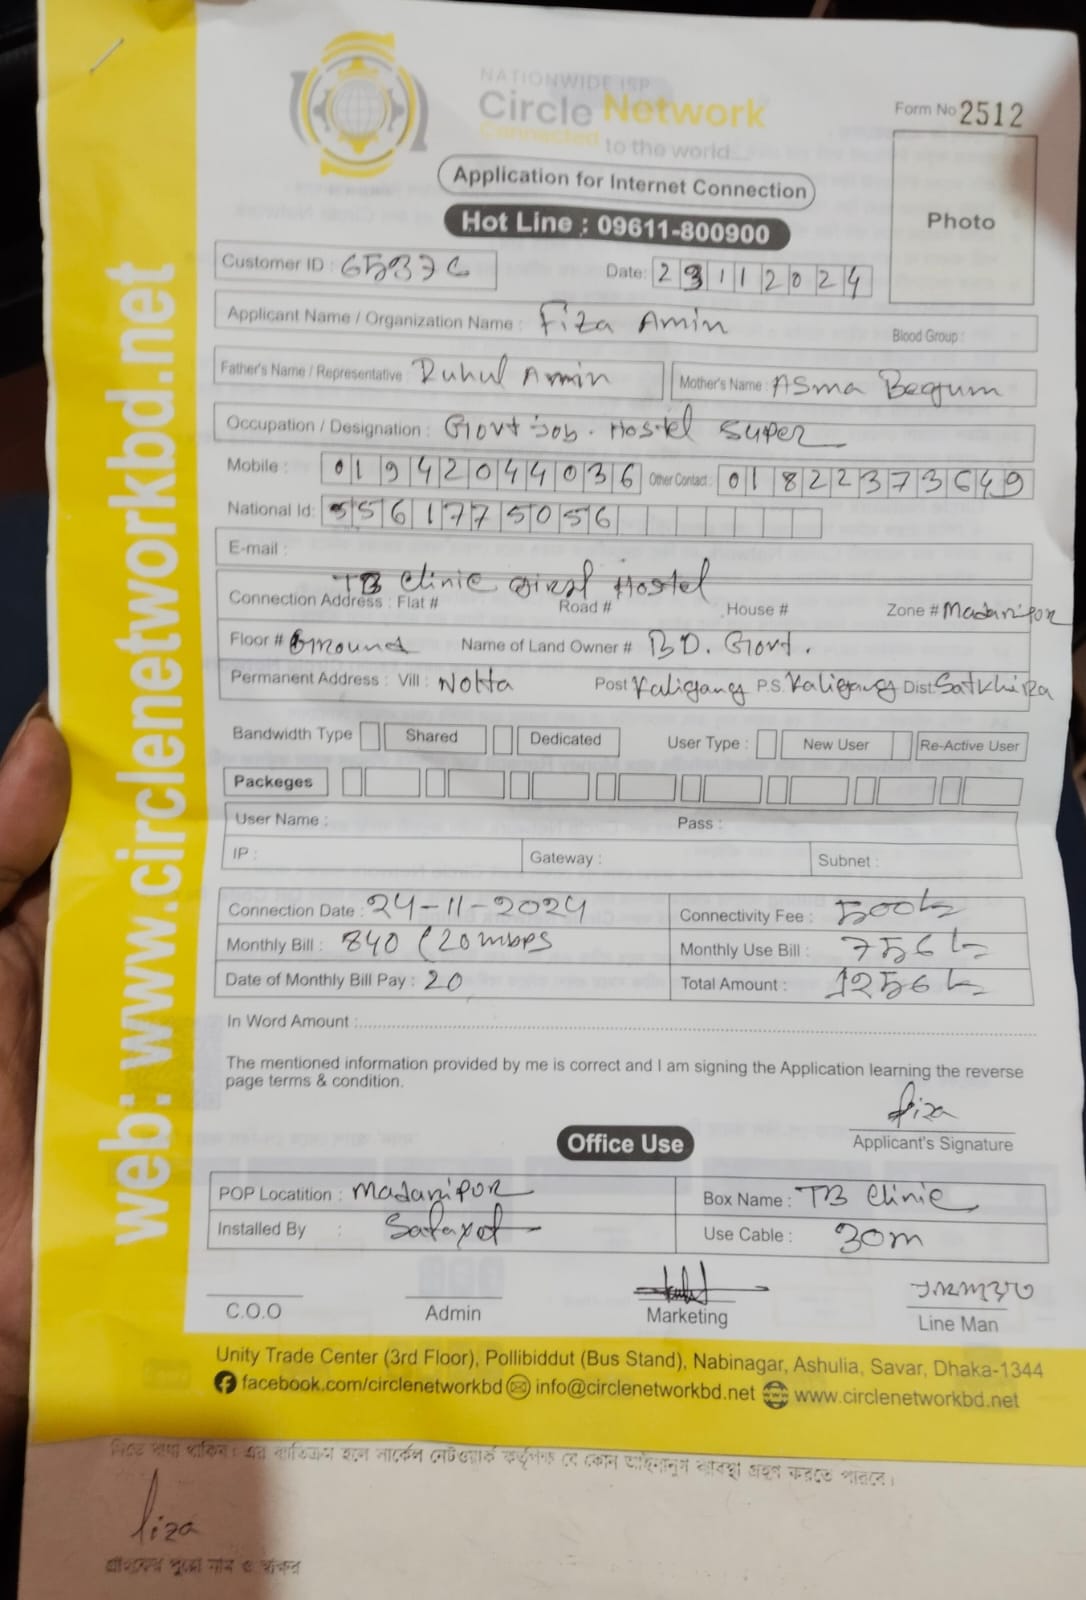 NATIONWIDE ISP
Circle Network
Connected to the world...
Form No 2512
Application for Internet Connection
Hot Line : 09611-800900
Photo
Customer ID : 65376
Date: 23112024
Applicant Name / Organization Name : Fiza Amin
Blood Group :
Father's Name / Representative : Ruhul Amin
Mother's Name : ASma Begum
Occupation / Designation : Govt job. Hostel Super
Mobile : 01942044036
Other Contact : 01822373649
National Id: 5561775056
E-mail :
TB Clinic Giral Hostel
Connection Address : Flat # Road # House # Zone # Madaripor
Floor # Ground Name of Land Owner # BD. Govt.
Permanent Address : Vill : Nolta Post Kaligang P.S. Kaligang Dist. Satkhira
Bandwidth Type Shared Dedicated User Type : New User Re-Active User
Packeges
User Name : Pass :
IP : Gateway : Subnet :
Connection Date : 24-11-2024
Connectivity Fee : 500
Monthly Bill : 840 (20 mbps
Monthly Use Bill : 756
Date of Monthly Bill Pay : 20
Total Amount : 1256
In Word Amount :
The mentioned information provided by me is correct and I am signing the Application learning the reverse
page terms & condition.
fiza
Applicant's Signature
Office Use
POP Locatition : Madaripor
Box Name : TB Clinic
Installed By :
Use Cable : 30m
C.O.O
Admin
Marketing
Line Man
Unity Trade Center (3rd Floor), Pollibiddut (Bus Stand), Nabinagar, Ashulia, Savar, Dhaka-1344
facebook.com/circlenetworkbd info@circlenetworkbd.net www.circlenetworkbd.net
web: www.circlenetworkbd.net
থাকিব। এর ব্যতিক্রম হলে সার্কেল নেটওয়ার্ক কর্তৃপক্ষ যে কোন আইনানুগ ব্যবস্থা গ্রহণ করতে পারবে।
fiza
গ্রাহকের পুরো নাম ও স্বাক্ষর